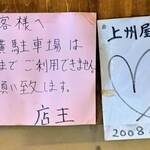 客様へ
駐車場は
まで ご利用できません。
願い致します。
店主
上州屋
2008.